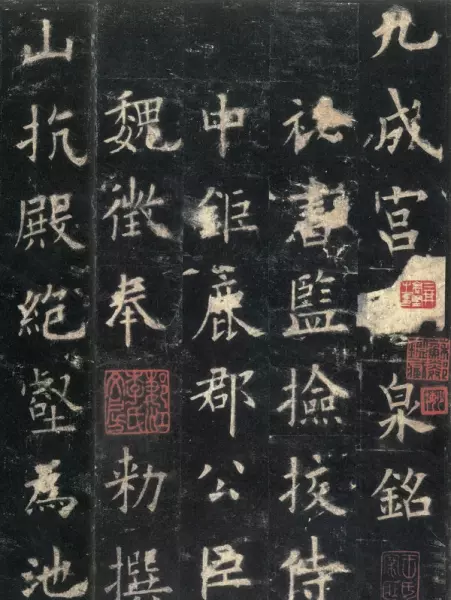 九成宮泉銘
祕書監撿挍侍
中鉅鹿郡公臣
魏徵奉勑撰
山抗殿絕壑為池